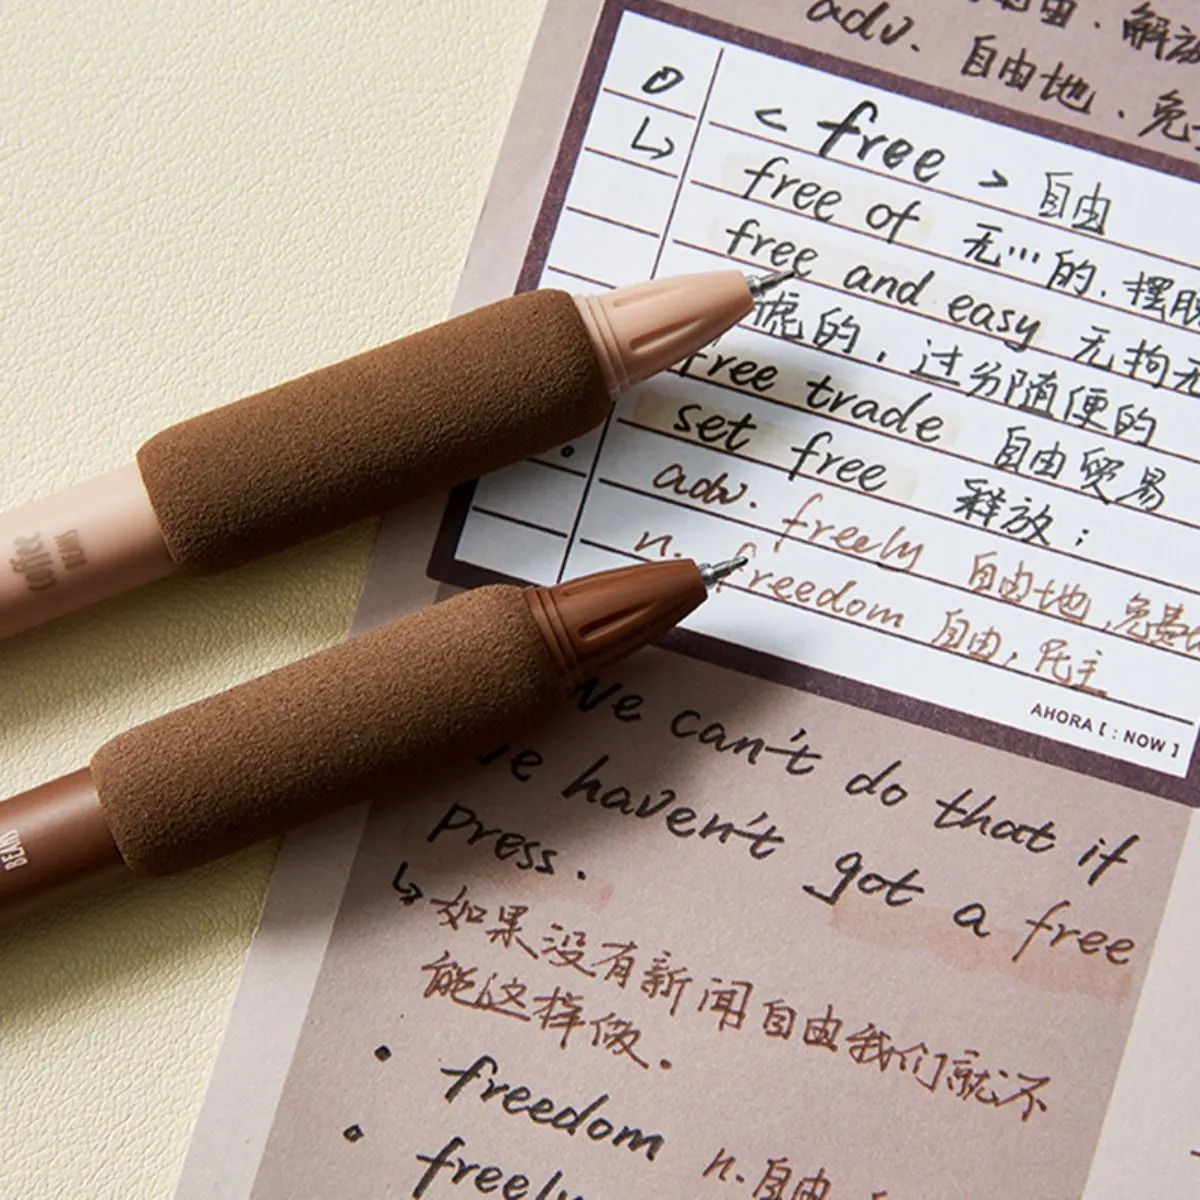 自由．解放
adv. 自由地．免
< free > 自由
free of 无…的．摆脱
free and easy 无拘无
虑的，过分随便的
free trade 自由贸易
set free 释放；
adv. freely 自由地，免费
n. freedom 自由，民主
AHORA [ : NOW ]
We can't do that if
we haven't got a free
press.
↳ 如果没有新闻自由我们就不
能这样做.
• freedom n.自由
• freely
coffee
BEANS
BEANS